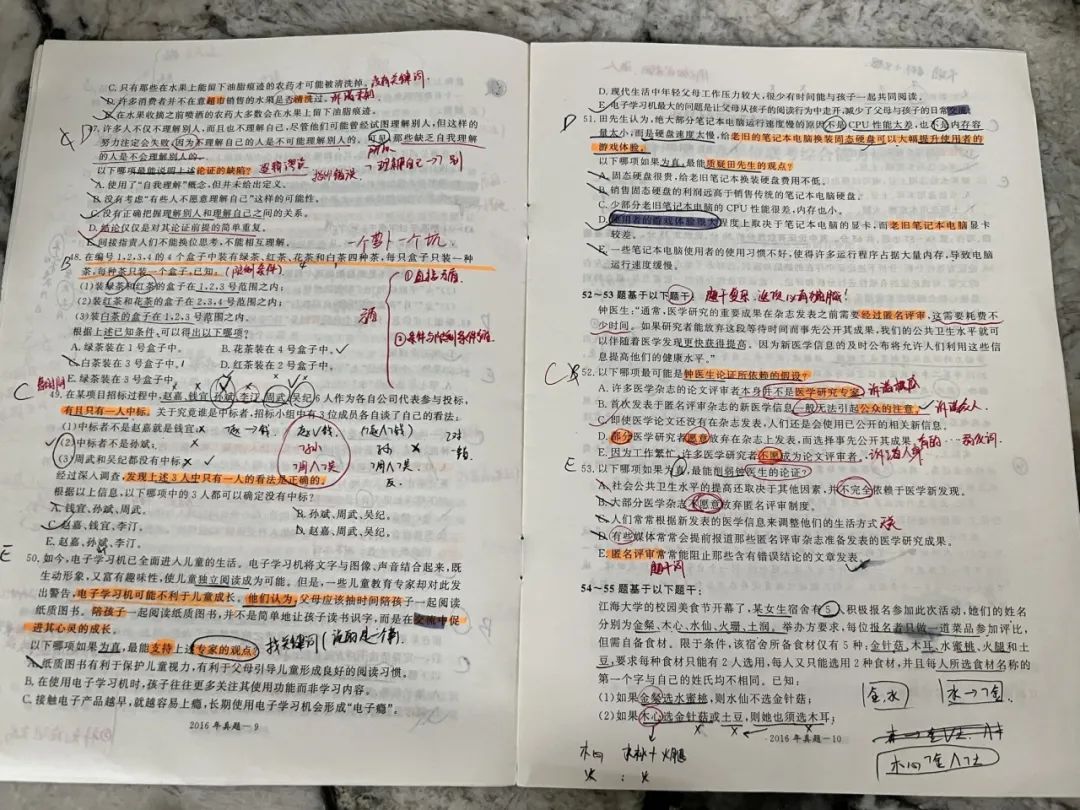 C. 只有那些在水果上能留下油脂痕迹的农药才可能被清洗掉。没有关键词
D. 许多消费者并不在意超市销售的水果是否清洗过。
E. 在水果收摘之前喷洒的农药大多数会在水果上留下油脂痕迹。
D 47. 许多人不仅不理解别人,而且也不理解自己,尽管他们可能曾经试图理解别人,但这样的
努力注定会失败,因为不理解自己的人是不可能理解别人的。可见,那些缺乏自我理解
的人是不会理解别人的。
以下哪项最能说明上述论证的缺陷?
A. 使用了“自我理解”概念,但并未给出定义。
B. 没有考虑“有些人不愿意理解自己”这样的可能性。
C. 没有正确把握理解别人和理解自己之间的关系。
D. 结论仅仅是对其论证前提的简单重复。
E. 间接指责人们不能换位思考,不能相互理解。
一个萝卜一个坑
B 48. 在编号1、2、3、4的4个盒子中装有绿茶、红茶、花茶和白茶四种茶,每只盒子只装一种
茶,每种茶只装一个盒子,已知:(限制条件)
(1)装绿茶和红茶的盒子在1、2、3号范围之内;
(2)装红茶和花茶的盒子在2、3、4号范围之内;
(3)装白茶的盒子在1、2、3号范围之内。
根据上述已知条件,可以得出以下哪项?
A. 绿茶装在1号盒子中。 B. 花茶装在4号盒子中。
C. 白茶装在3号盒子中。 D. 红茶装在2号盒子中。
E. 绿茶装在3号盒子中。
C 49. 在某项目招标过程中,赵嘉、钱宜、孙斌、李汀、周武、吴纪6人作为各自公司代表参与投标,
有且只有一人中标。关于究竟谁是中标者,招标小组中有3位成员各自谈了自己的看法:
(1)中标者不是赵嘉就是钱宜;
(2)中标者不是孙斌;
(3)周武和吴纪都没有中标。
经过深入调查,发现上述3人中只有一人的看法是正确的。
根据以上信息,以下哪项中的3人都可以确定没有中标?
A. 钱宜、孙斌、周武。 B. 孙斌、周武、吴纪。
C. 赵嘉、钱宜、李汀。 D. 赵嘉、周武、吴纪。
E. 赵嘉、孙斌、李汀。
E 50. 如今,电子学习机已全面进入儿童的生活。电子学习机将文字与图像、声音结合起来,既
生动形象,又富有趣味性,使儿童独立阅读成为可能。但是,一些儿童教育专家却对此发
出警告,电子学习机可能不利于儿童成长。他们认为,父母应该抽时间陪孩子一起阅读
纸质图书。陪孩子一起阅读纸质图书,并不是简单地让孩子读书识字,而是在交流中促
进其心灵的成长。
以下哪项如果为真,最能支持上述专家的观点?
A. 纸质图书有利于保护儿童视力,有利于父母引导儿童形成良好的阅读习惯。
B. 在使用电子学习机时,孩子往往更多关注其使用功能而非学习内容。
C. 接触电子产品越早,就越容易上瘾,长期使用电子学习机会形成“电子瘾”。
2016年真题-9
D. 现代生活中年轻父母工作压力较大,很少有时间能与孩子一起共同阅读。
E. 电子学习机最大的问题是让父母从孩子的阅读行为中走开,减少了父母与孩子的日常交流。
D 51. 田先生认为,绝大部分笔记本电脑运行速度慢的原因不是CPU性能太差,也不是内存容
量太小,而是硬盘速度太慢,给老旧的笔记本电脑换装固态硬盘可以大幅提升使用者的
游戏体验。
以下哪项如果为真,最能质疑田先生的观点?
A. 固态硬盘很贵,给老旧笔记本换装硬盘费用不低。
B. 销售固态硬盘的利润远高于销售传统的笔记本电脑硬盘。
C. 少部分老旧笔记本电脑的CPU性能很差,内存也小。
D. 使用者的游戏体验很大程度上取决于笔记本电脑的显卡,而老旧笔记本电脑显卡
较差。
E. 一些笔记本电脑使用者的使用习惯不好,使得许多运行程序占据大量内存,导致电脑
运行速度缓慢。
52~53题基于以下题干:
钟医生:“通常,医学研究的重要成果在杂志发表之前需要经过匿名评审,这需要耗费不
少时间。如果研究者能放弃这段等待时间而事先公开其成果,我们的公共卫生水平就可
以伴随着医学发现更快获得提高。因为新医学信息的及时公布将允许人们利用这些信
息提高他们的健康水平。”
52. 以下哪项最可能是钟医生论证所依赖的假设?
A. 许多医学杂志的论文评审者本身并不是医学研究专家。
B. 首次发表于匿名评审杂志的新医学信息一般无法引起公众的注意。
C. 即使医学论文还没有在杂志发表,人们还是会使用已公开的相关新信息。
D. 部分医学研究者愿意放弃在杂志上发表,而选择事先公开其成果。
E. 因为工作繁忙,许多医学研究者不愿成为论文评审者。
E 53. 以下哪项如果为真,最能削弱钟医生的论证?
A. 社会公共卫生水平的提高还取决于其他因素,并不完全依赖于医学新发现。
B. 大部分医学杂志不愿意放弃匿名评审制度。
C. 人们常常根据新发表的医学信息来调整他们的生活方式。
D. 有些媒体常常会提前报道那些匿名评审杂志准备发表的医学研究成果。
E. 匿名评审常常能阻止那些含有错误结论的文章发表。
题干词
54~55题基于以下题干:
江海大学的校园美食节开幕了,某女生宿舍有5人积极报名参加此次活动,她们的姓名
分别为金粲、木心、水仙、火珊、土润。举办方要求,每位报名者只做一道菜品参加评比,
但需自备食材。限于条件,该宿舍所备食材仅有5种:金针菇、木耳、水蜜桃、火腿和土
豆,要求每种食材只能有2人选用,每人又只能选用2种食材,并且每人所选食材名称的
第一个字与自己的姓氏均不相同。已知:
(1)如果金粲选水蜜桃,则水仙不选金针菇;
(2)如果木心选金针菇或土豆,则她也须选木耳;
2016年真题-10